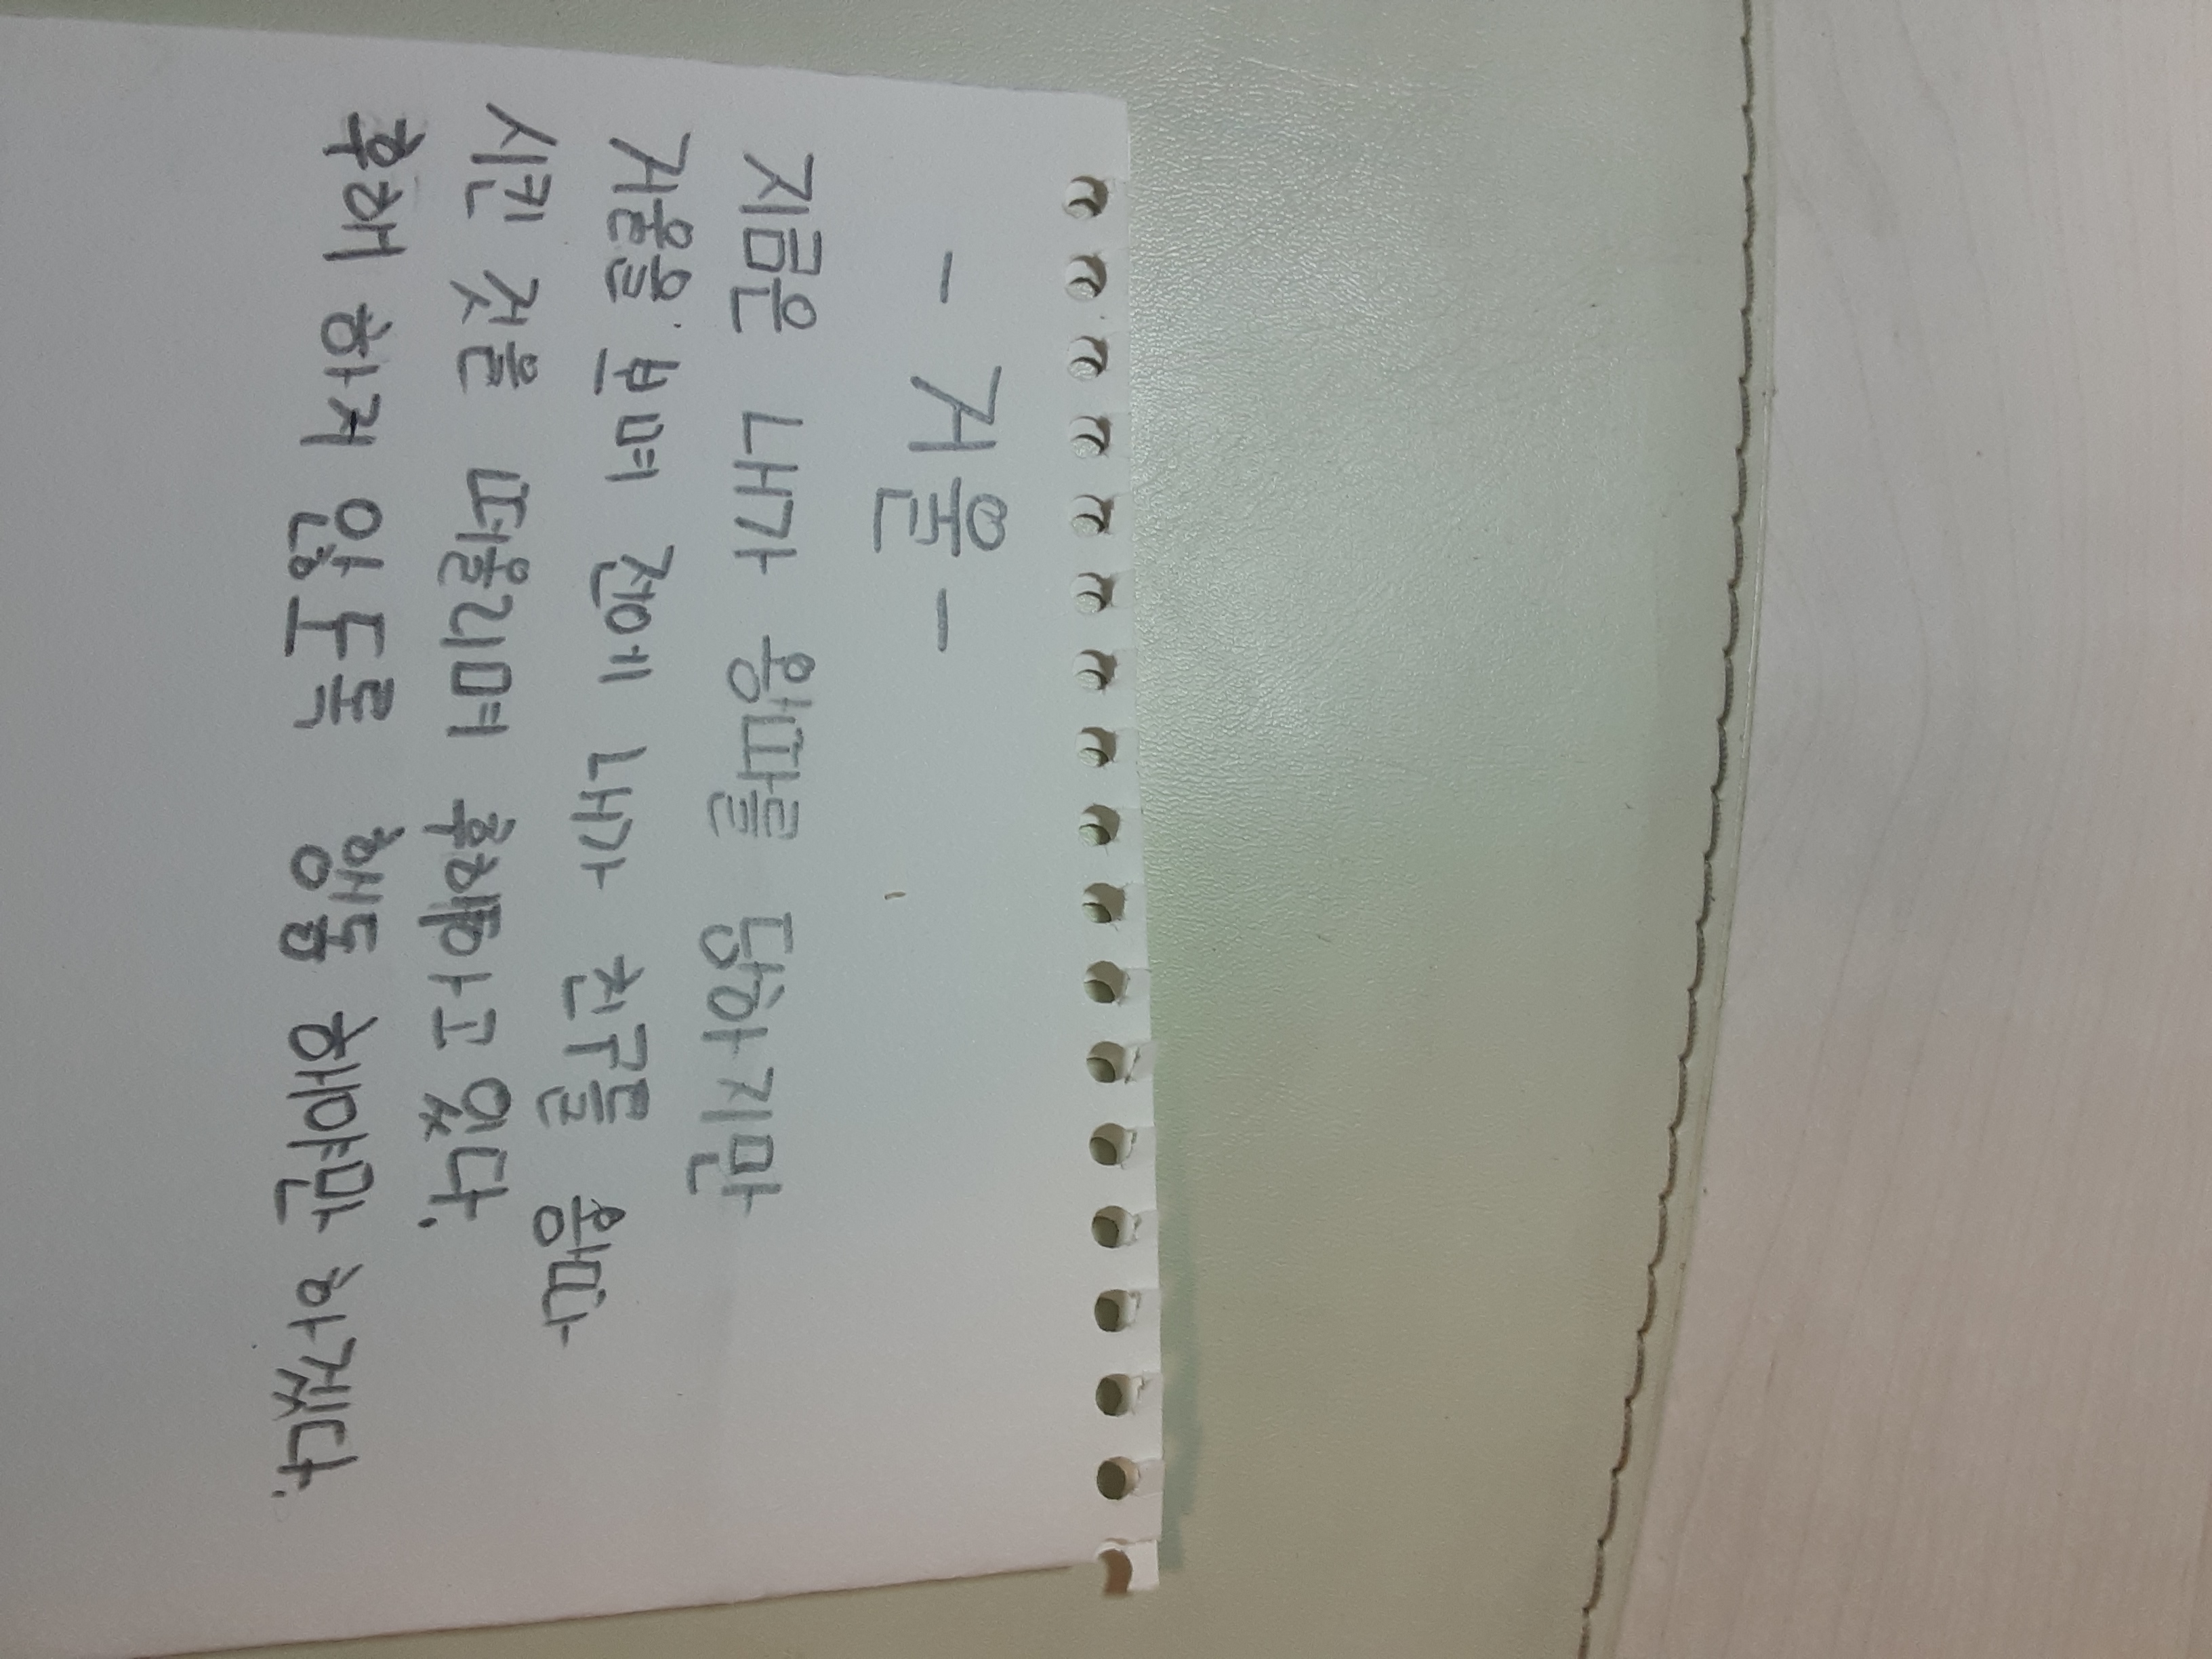 - 거울 -
지금은 내가 왕따를 당하지만
거울을 보며 전에 내가 친구를 왕따
시킨 것을 떠올리며 후회하고 있다.
후회 하지 않도록 행동 해야만 하겠다.